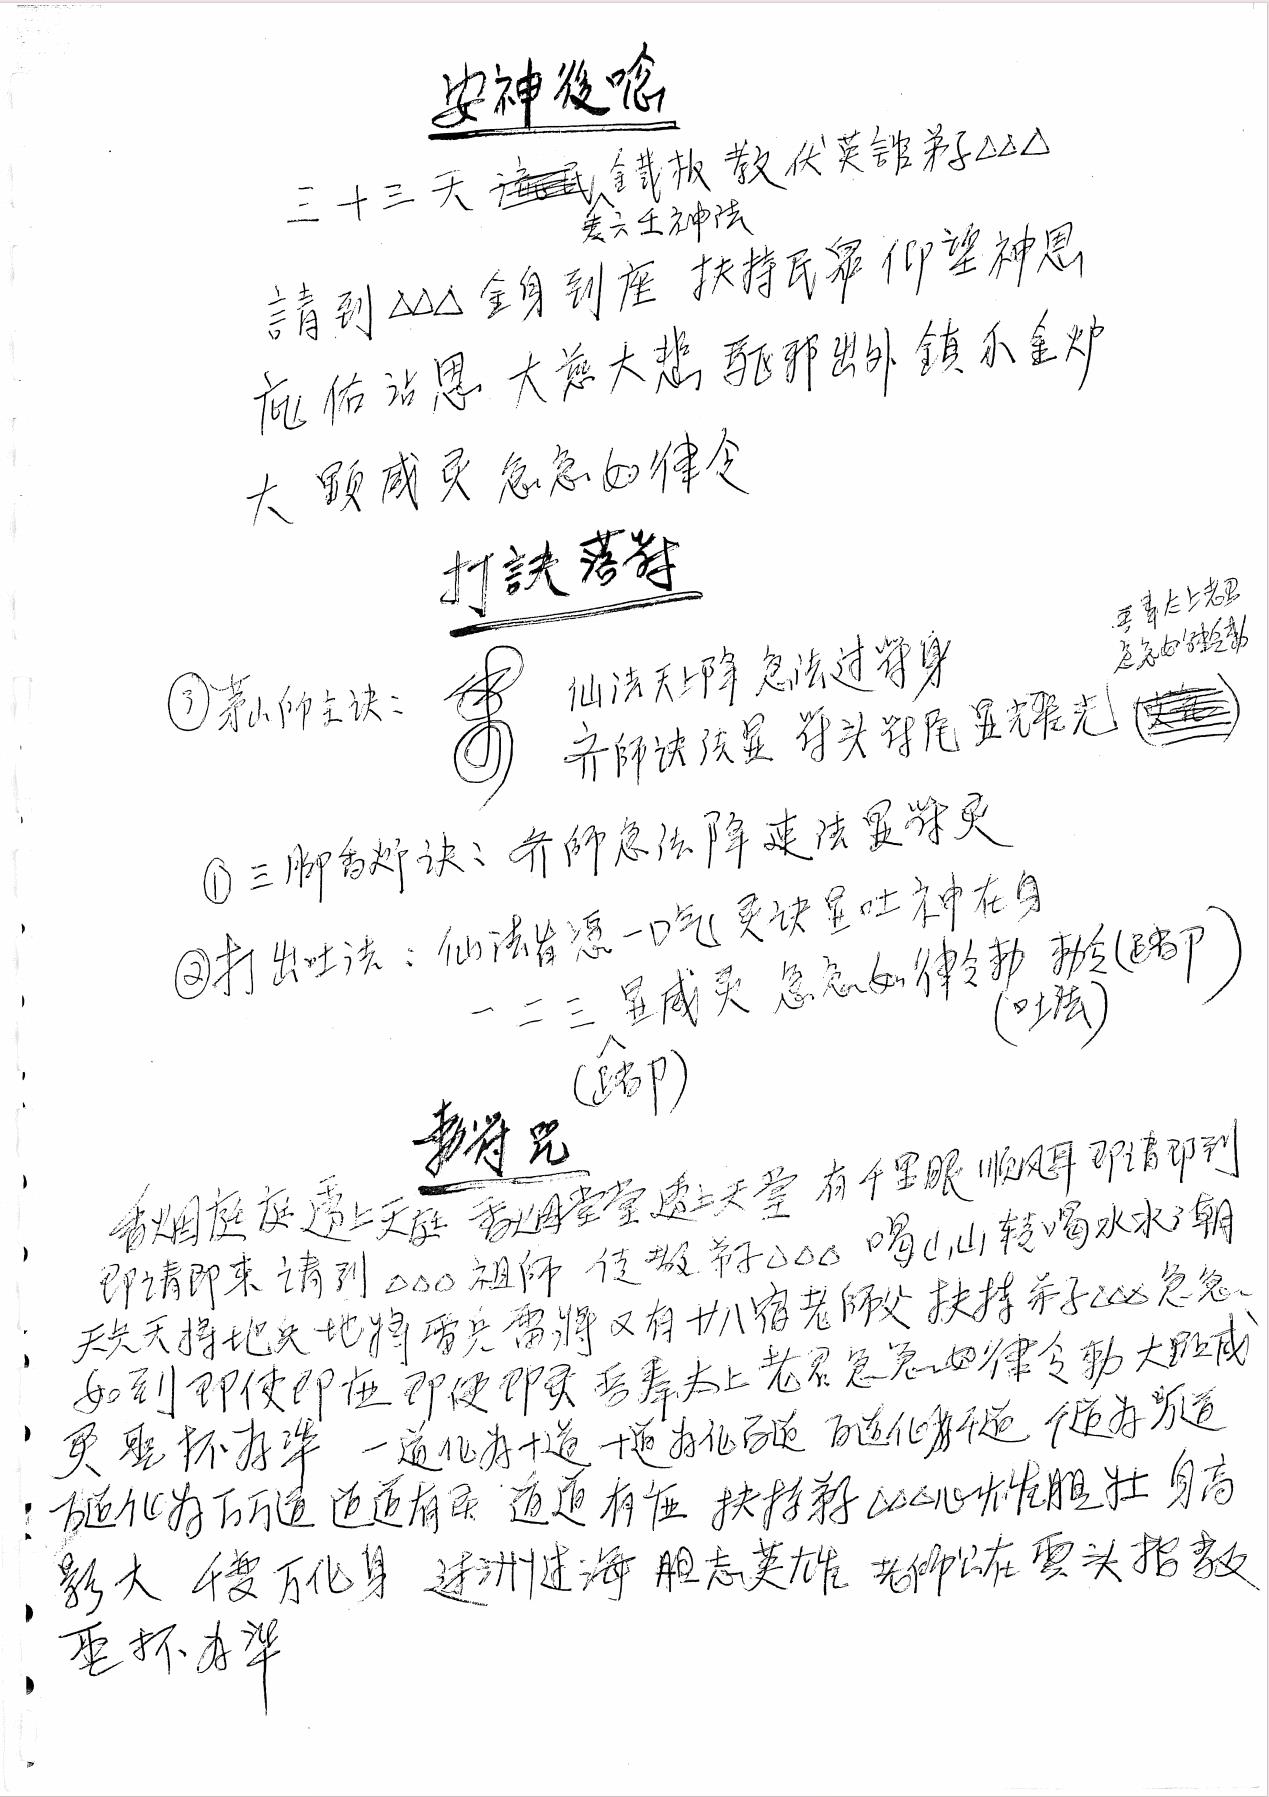 安神後唸
三十三天 鐵板教伏英舘弟子△△△
六壬神法
請到△△△金身到座 扶持民眾仰望神恩
庇佑沾恩 大慈大悲 驅邪出外 鎮 金炉
大顯威灵 急急如律令
打訣落符
吾奉太上老君
急急如律令勅
③茅山師主诀： 仙法天上降 急法过符身
齐師诀法显 符头符尾显光
①三脚香炉诀： 齐師急法降 速法显符灵
②打出吐法： 仙法皆凭一口气 灵诀显吐神在身
一二三显威灵 急急如律令勅 勅令(踏卩)
(吐法)
(踏卩)
勅符咒
香烟庭庭透上天庭 香烟堂堂透上天堂 有千里眼 順风耳 即请即到
即请即来 请到△△△祖師 弟子△△△ 喝山山转喝水水朝
天兵天将地兵地將雷兵雷將又有廿八宿老師父 扶持弟子△△△急急
如到 即使即应 即使即灵 吾奉太上老君急急如律令勅 大显威
灵 聖杯为準 一道化为十道 十道为化百道 百道化为千道 千道为万道
万道化为万万道 道道有灵 道道有应 扶持弟子△△△心雄胆壮 身高
影大 千变万化身 过洲过海 胆志英雄 老師公在雲头指教
聖杯为準